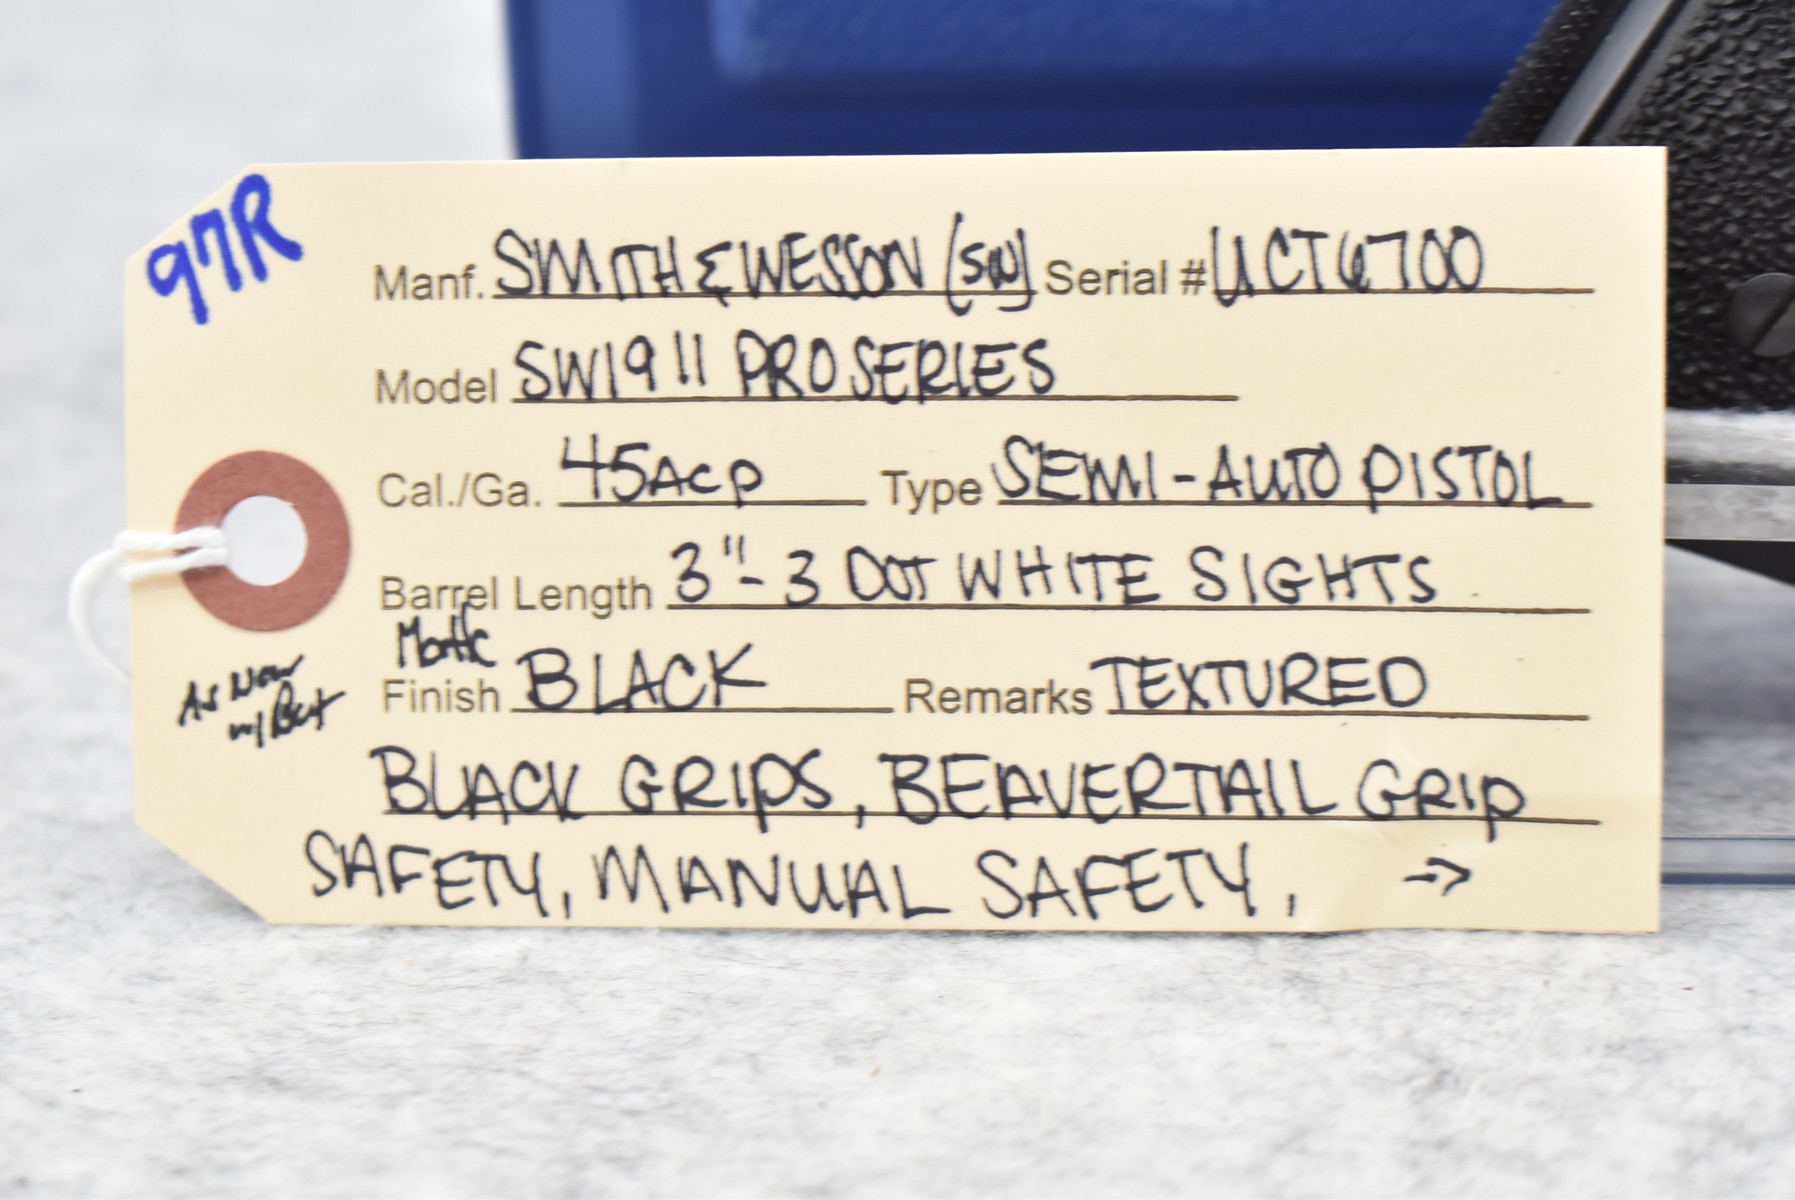 97R
Manf. SMITH & WESSON (SW) Serial # UCT6700
Model SW1911 PRO SERIES
Cal./Ga. 45ACP Type SEMI-AUTO PISTOL
Barrel Length 3"- 3 DOT WHITE SIGHTS
Matte
Finish BLACK Remarks TEXTURED
As New
w/ Box
BLACK GRIPS, BEAVERTAIL GRIP
SAFETY, MANUAL SAFETY, →